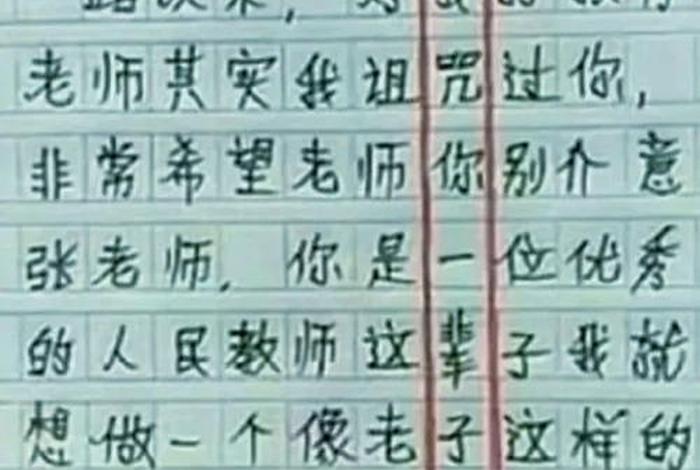 老师其实我诅咒过你，
非常希望老师你别介意
张老师，你是一位优秀
的人民教师这辈子我就
想做一个像老子这样的